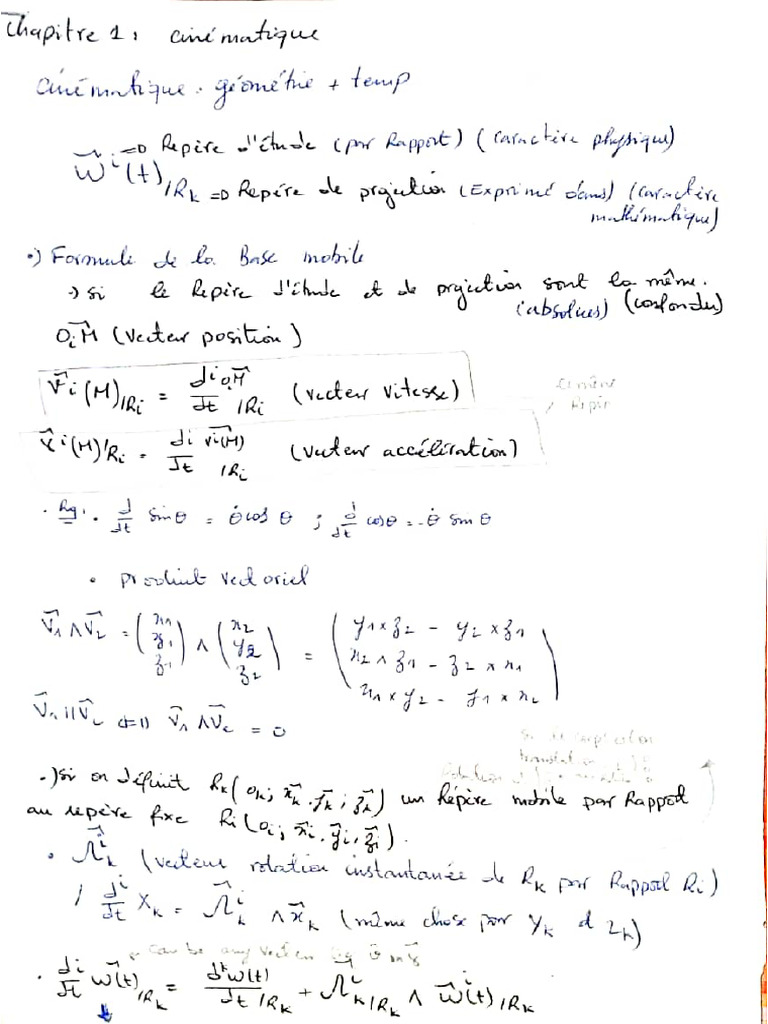 Chapitre 1 : cinématique
cinématique : géométrie + temp
=> Repère d'étude (par Rapport) (caractère physique)
W⃗ⁱ(t)/Rk => Repère de projection (Exprimé dans) (caractère
mathématique)
•) Formule de la Base mobile
→ si le Repère d'étude et de projection sont la même.
(absolues) (confondus)
OᵢM⃗ (vecteur position)
V⃗ⁱ(M)/Ri = dⁱOᵢM⃗/dt /Ri (vecteur vitesse)
le même
Repèr
γ⃗ⁱ(M)/Ri = dⁱ V⃗ⁱ(M)/dt /Ri (vecteur accélération)
• Rq : • d/dt sin θ = θ̇ cos θ ; d/dt cos θ = -θ̇ sin θ
• produit vectoriel
V⃗1 ∧ V⃗2 = (x1 y1 z1) ∧ (x2 y2 z2) = (y1 × z2 - y2 × z1
x2 × z1 - z2 × x1
x1 × y2 - y1 × x2)
V⃗1 // V⃗2 <=> V⃗1 ∧ V⃗2 = 0
translation
•) si on définit Rk(Ok; x⃗k, y⃗k; z⃗k) un Répère mobile par Rapport
au repère fixe Ri(Oi; x⃗i, y⃗i, z⃗i).
• Ω⃗ⁱk (vecteur rotation instantanée de Rk par Rapport Ri)
/ dⁱ/dt Xk = Ω⃗ⁱk ∧ x⃗k (même chose pour Yk et Zk)
can be any vecteur eg v⃗ or γ⃗
• dⁱ/dt W⃗(t)/Rk = dᵏW⃗(t)/dt /Rk + Ω⃗ⁱk/Rk ∧ W⃗(t)/Rk